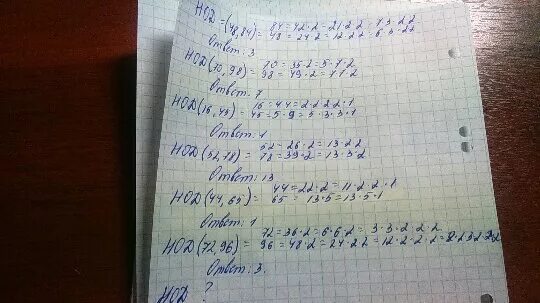 НОД =(48,84)= 84=42·2=21·2·2=7·3·2·2
48=24·2=12·2·2=6·3·2·2
Ответ: 3
НОД (70,98)= 70=35·2=5·7·2
98=49·2=7·7·2
Ответ: 7
НОД (16,45)= 16=4·4=2·2·2·2·1
45=5·9=5·3·3·1
Ответ: 1
НОД (52,78)= 52=26·2=13·2·2
78=39·2=13·3·2
Ответ: 13
НОД (44,65)= 44=22·2=11·2·2·1
65=13·5=13·5·1
Ответ: 1
НОД (72,96)= 72=36·2=6·6·2=3·3·2·2·2
96=48·2=24·2·2=12·2·2·2=
Ответ: 3.
НОД ?